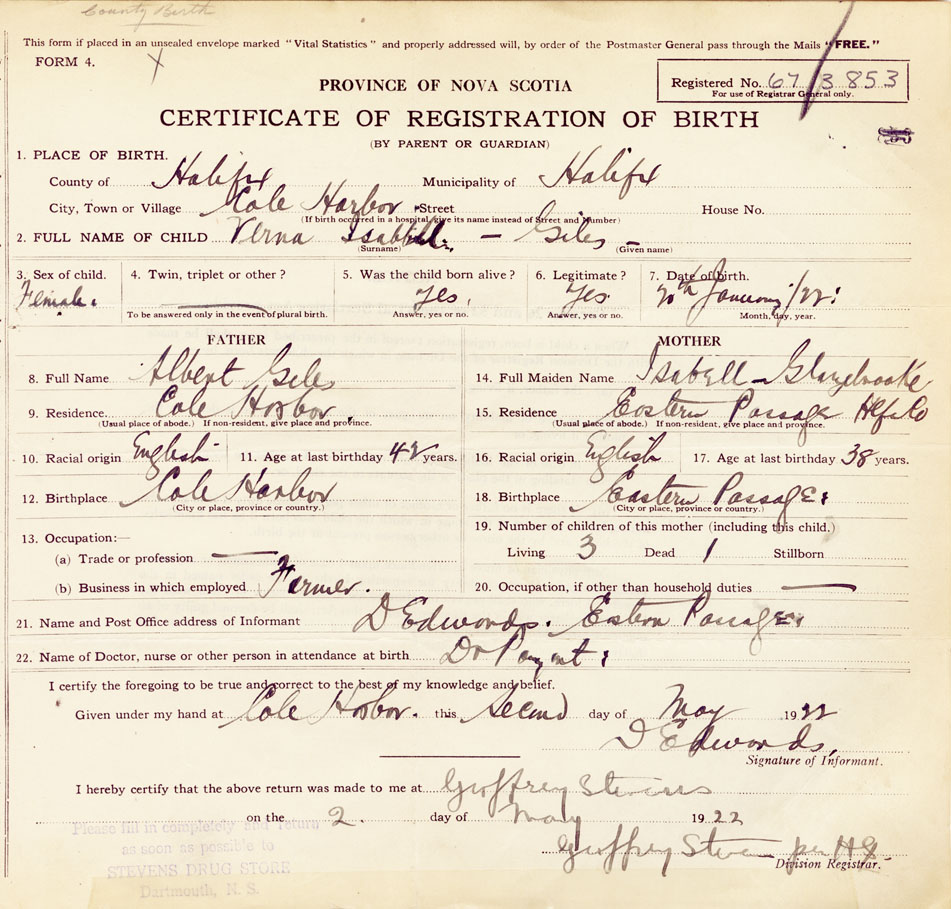 County Birth
This form if placed in an unsealed envelope marked "Vital Statistics" and properly addressed will, by order of the Postmaster General pass through the Mails "FREE."
FORM 4. X
Registered No. 67 / 3853
For use of Registrar General only.
PROVINCE OF NOVA SCOTIA
CERTIFICATE OF REGISTRATION OF BIRTH
(BY PARENT OR GUARDIAN)
1. PLACE OF BIRTH.
County of Halifx Municipality of Halifx
City, Town or Village Cole Harbor Street House No.
(If birth occurred in a hospital, give its name instead of Street and Number)
2. FULL NAME OF CHILD Verna – Giles –
(Surname) (Given name)
3. Sex of child. 4. Twin, triplet or other? 5. Was the child born alive? 6. Legitimate? 7. Date of birth.
Female. Yes. Yes. 20th January/22
To be answered only in the event of plural birth. Answer, yes or no. Answer, yes or no. Month, day, year.
FATHER
8. Full Name Albert Giles
9. Residence Cole Horbor.
(Usual place of abode.) If non-resident, give place and province.
10. Racial origin English 11. Age at last birthday 42 years.
12. Birthplace Cole Harbor
(City or place, province or country.)
13. Occupation:—
(a) Trade or profession —
(b) Business in which employed Farmer.
MOTHER
14. Full Maiden Name Isabell – Glazebrooke
15. Residence Eastern Passage Hfx Co
(Usual place of abode.) If non-resident, give place and province.
16. Racial origin English 17. Age at last birthday 38 years.
18. Birthplace Eastern Passage
(City or place, province or country.)
19. Number of children of this mother (including this child.)
Living 3 Dead 1 Stillborn
20. Occupation, if other than household duties —
21. Name and Post Office address of Informant D Edwords. Estern Passage
22. Name of Doctor, nurse or other person in attendance at birth Dr Payznt
I certify the foregoing to be true and correct to the best of my knowledge and belief.
Given under my hand at Cole Horbor. this Second day of May 1922
D Edwords,
Signature of Informant.
I hereby certify that the above return was made to me at Geoffrey Stevens
on the 2. day of May 1922
Geoffrey Steven per HG
Division Registrar.
Please fill in completely and return
as soon as possible to
STEVENS DRUG STORE
Dartmouth, N. S.